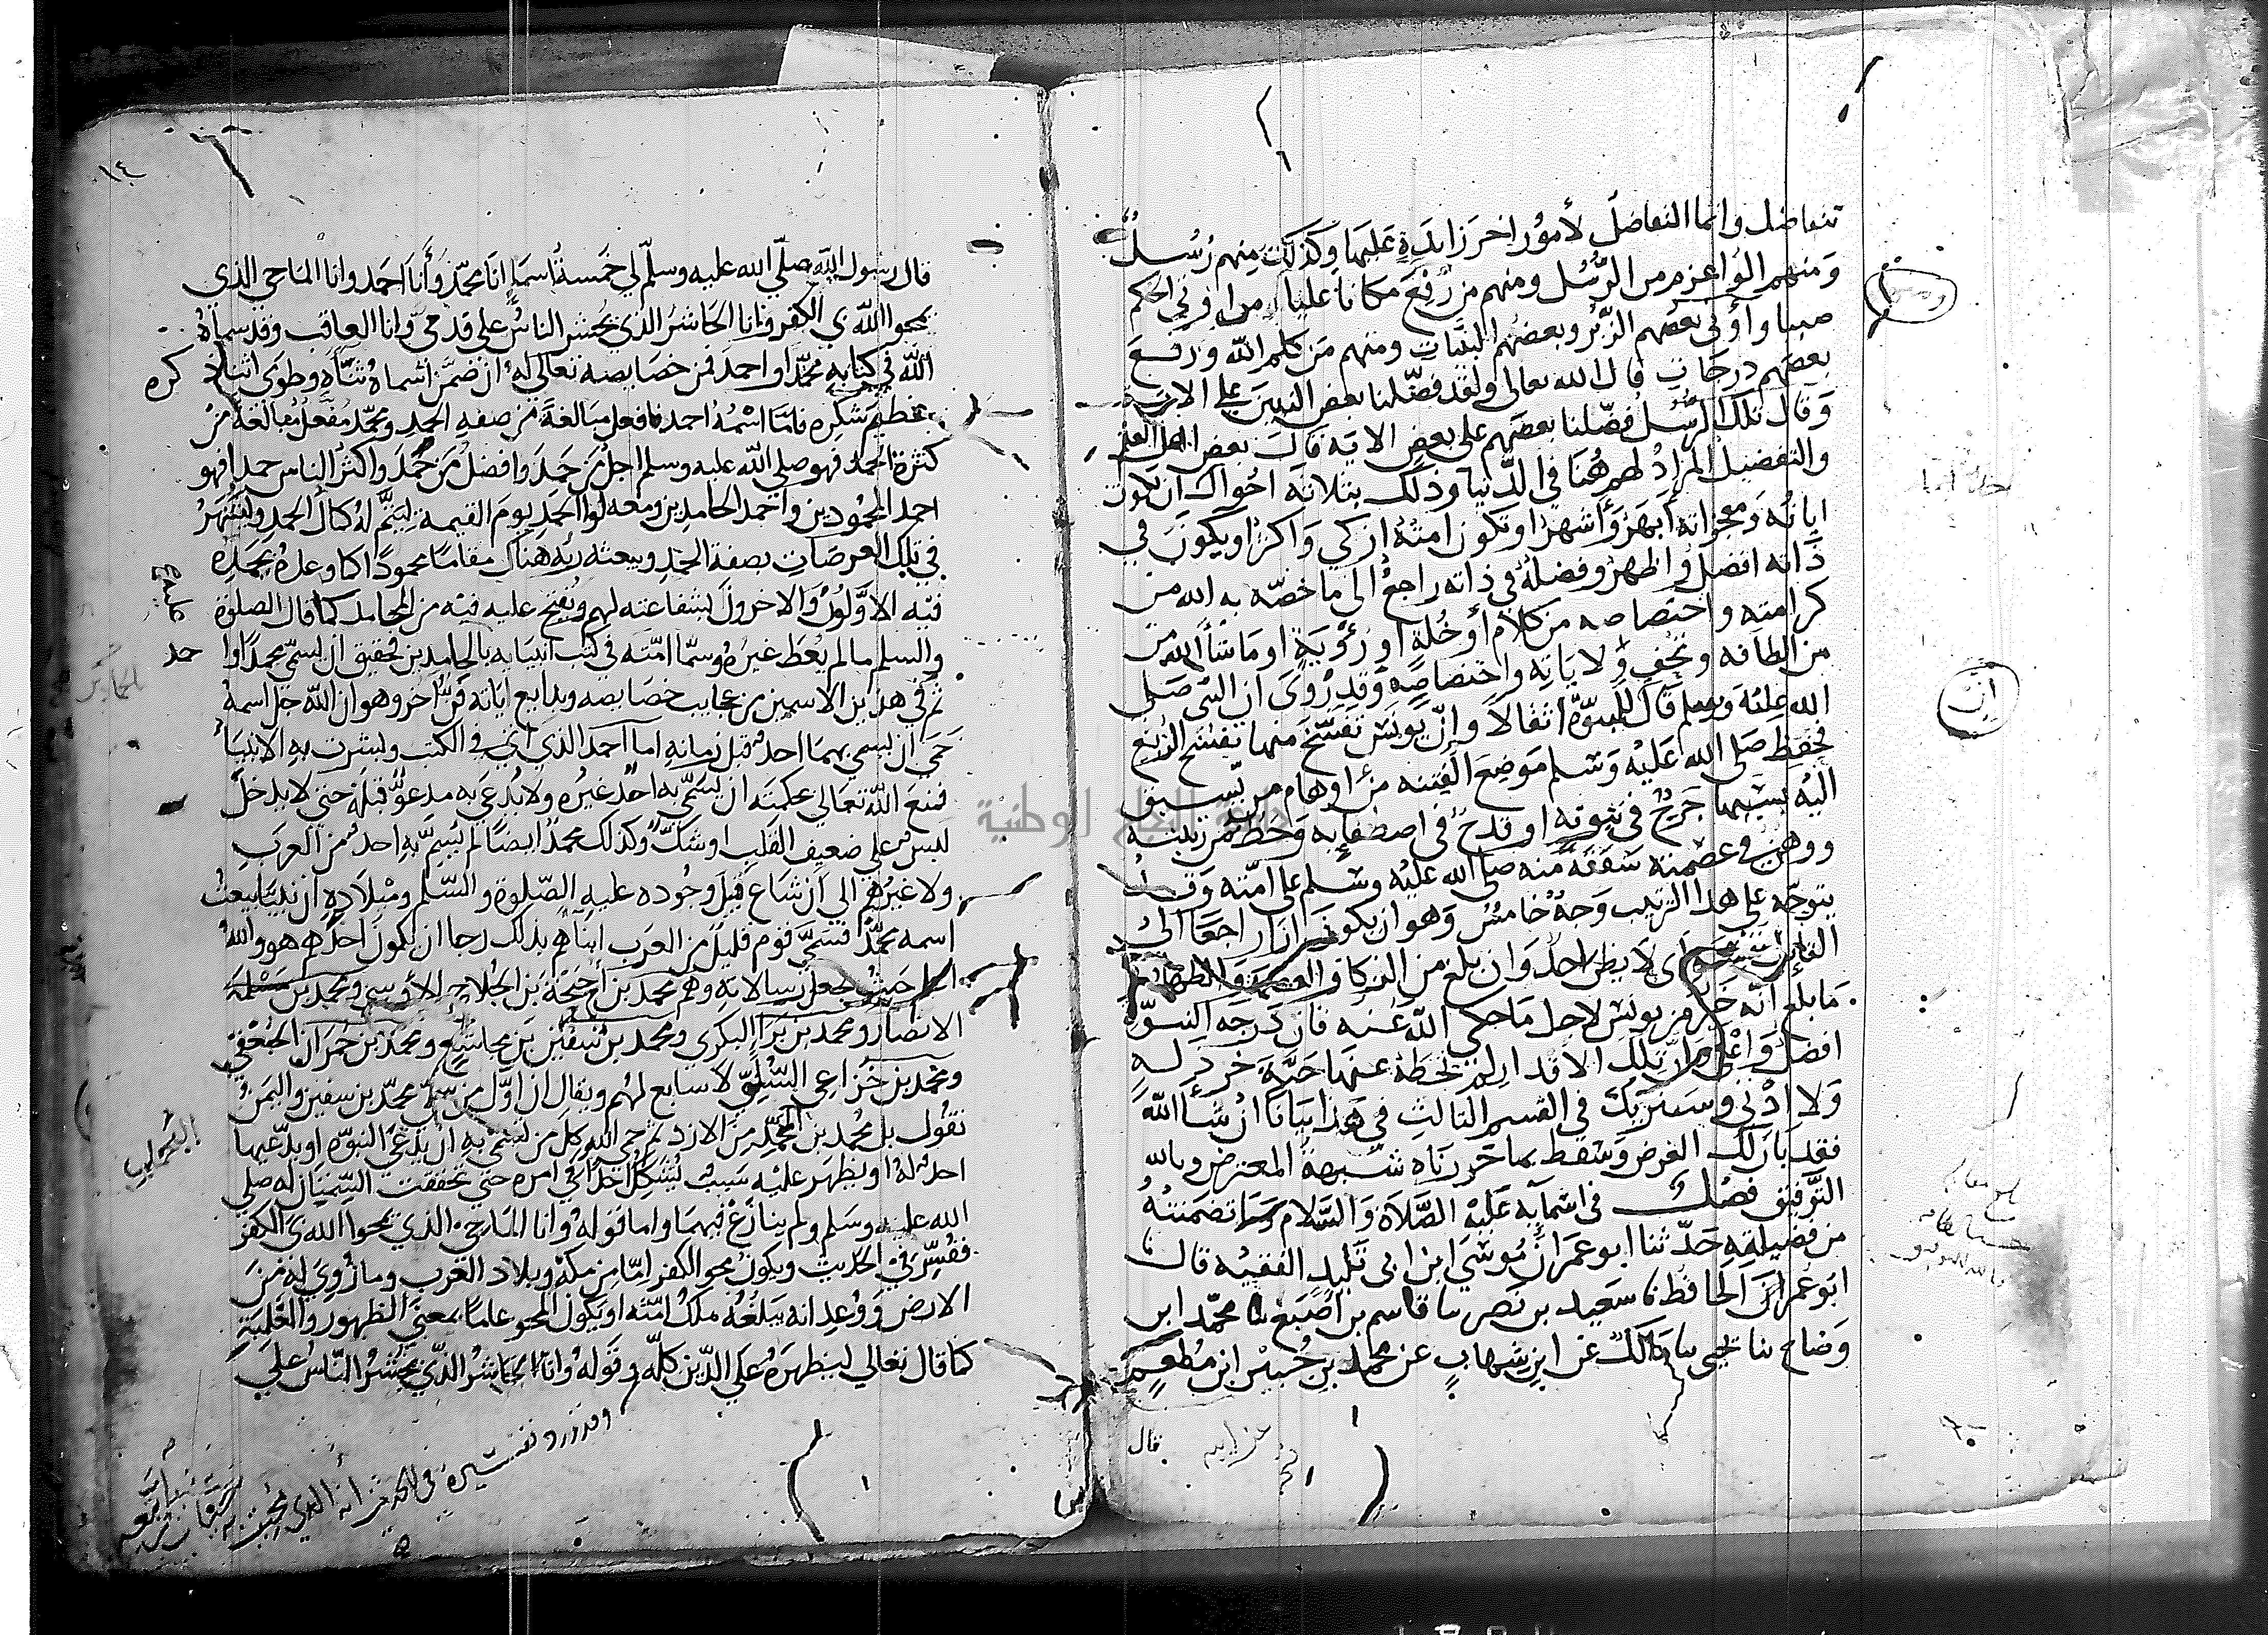 تتفاضل وانما التفاضل لأمور اخر زايدة عليها وكذلك منهم رسل
ومنهم الوا عزم من الرسل ومنهم من رفع مكانا عليا ومن اوتي الحكم
صبيا وأوتي بعضهم الزبر وبعضهم البينات ومنهم من كلم الله ورفع
بعضهم درجات قال الله تعالى ولقد فضلنا بعض النبيين على الاية
وقال تلك الرسل فضلنا بعضهم على بعض الاية قال بعض اهل العلم
والتفضيل المراد لهم هنا في الدنيا وذلك بثلاثة احوال ان تكون
اياته ومعجزاته أبهر وأشهر او تكون امته ازكي واكثر او يكون في
ذاته افضل واطهر وفضله في ذاته راجع الى ما خصه به الله من
كرامته واختصاصه من كلام أو خلة او رؤية او ما شأ الله من
من الطافه وتحف ولاياته واختصاصه وقد روي ان النبي صلى
الله عليه وسلم قال للنبوة اثقالا وإن يونس تفسخ منها تفسخ الربع
فحفظ صلى الله عليه وسلم موضع الفتنه من اوهام من يسبق
اليه بسببها جرح في نبوته او قدح في اصطفايه وحط من رتبته
ووهن في عصمته شفقة منه صلى الله عليه وسلم على امته وقد
يتوجه على هذا الترتيب وجه خامس وهو ان يكون انا راجعا الى
القائل نفسه اى لا يظن احد وان بلغ من الزكا والعصمة والطهارة
ما بلغ انه خير من يونس لاجل ما حكى الله عنه فان درجه النبوة
افضل واعلى وان تلك الاقدار لم تحطه عنها حبة خردله
ولا ادنى وسنزيدك في القسم الثالث في هذا بيانا ان شأ الله
فقد بان لك الغرض وسقط بما حررناه شبهة المعترض وبالله
التوفيق فصل في اسمايه عليه الصلاة والسلام وما تضمنته
من فضيلته حدثنا ابو عمران موسى ابن ابى تليد الفقيه قال ثنا
ابو عمر الحافظ ثنا سعيد بن نصر ثنا قاسم بن اصبغ ثنا محمد ابن
وضاح ثنا يحيى ثنا مالك عن ابن شهاب عن محمد بن جبير ابن مطعم
قال
إن
١٤
قال رسول الله صلى الله عليه وسلم لي خمسة أسما انا محمد وأنا احمد وانا الماحي الذي
يمحوا الله بي الكفر وانا الحاشر الذي يحشر الناس على قدمي وانا العاقب وقد سماه
الله في كتابه محمدا واحمد فمن خصايصه تعالى له ان ضمن أسماه ثنآه وطوى اثنا ذكره
بعظيم شكره فاما اسمه احمد فافعل مبالغة من صفه الحمد ومحمد مفعل مبالغة من
كثرة الحمد فهو صلى الله عليه وسلم اجل من حمد وافضل من حمد واكثر الناس حمدا فهو
احمد المحمودين واحمد الحامدين ومعه لوا الحمد يوم القيمة ليتم له كمال الحمد وليشتهر
في تلك العرصات بصفة الحمد ويبعثه ربه هناك مقاما محمودا كما وعده يحمده
فيه الاولون والاخرون لشفاعته لهم ويفتح عليه فيه من المحامد كما قال الصلوة
والسلم ما لم يعط غيره وسما امته في كتب انبيايه بالحامدين فحقيق ان يسمى محمدا وا حمد
ثم في هذين الاسمين من عجايب خصايصه وبدايع اياته فن آخر وهو ان الله جل اسمه
حمى ان يسمى بهما احد قبل زمانه اما احمد الذي أتى في الكتب وبشرت به الانبيأ
فمنع الله تعالى بحكمته ان يسمى به احد غيره ولا يدعى به مدعو قبله حتى لا يدخل
لبس على ضعيف القلب او شك وكذلك محمد ايضا لم يسم به احد من العرب
ولا غيرهم الى ان شاع قبل وجوده عليه الصلوة والسلم وميلاده ان نبيا يبعث
اسمه محمد فسمى قوم قليل من العرب ابناهم بذلك رجا ان يكون احدهم هو والله
اعلم حيث يجعل رسالاته وهم محمد بن أحيحة بن الجلاح الاوسي ومحمد بن مسلمة
الانصار ومحمد بن برا البكري ومحمد بن سفين بن مجاشع ومحمد بن حمران الجعفي
ومحمد بن خزاعي السلمي لا سابع لهم ويقال ان اول من سمى محمد بن سفين واليمن
تقول بل محمد بن اليحمد من الازد ثم حمى الله كل من تسمى به ان يدعي النبوة او يدعيها
احد له او يظهر عليه سبب يشكك احدا في امره حتى تحققت السمتان له صلى
الله عليه وسلم ولم ينازع فيهما واما قوله وانا الماحي الذي يمحوا الله بي الكفر
ففسر في الحديث ويكون محو الكفر اما من مكة وبلاد العرب وما زوي له من
الارض ووعد انه يبلغه ملك امته او يكون المحو عاما بمعنى الظهور والغلبة
كما قال تعالى ليظهره على الدين كله وقوله وانا الحاشر الذي يحشر الناس على
وقد ورد تفسيره في الحديث انه الذي محيت به سيئات من اتبعه